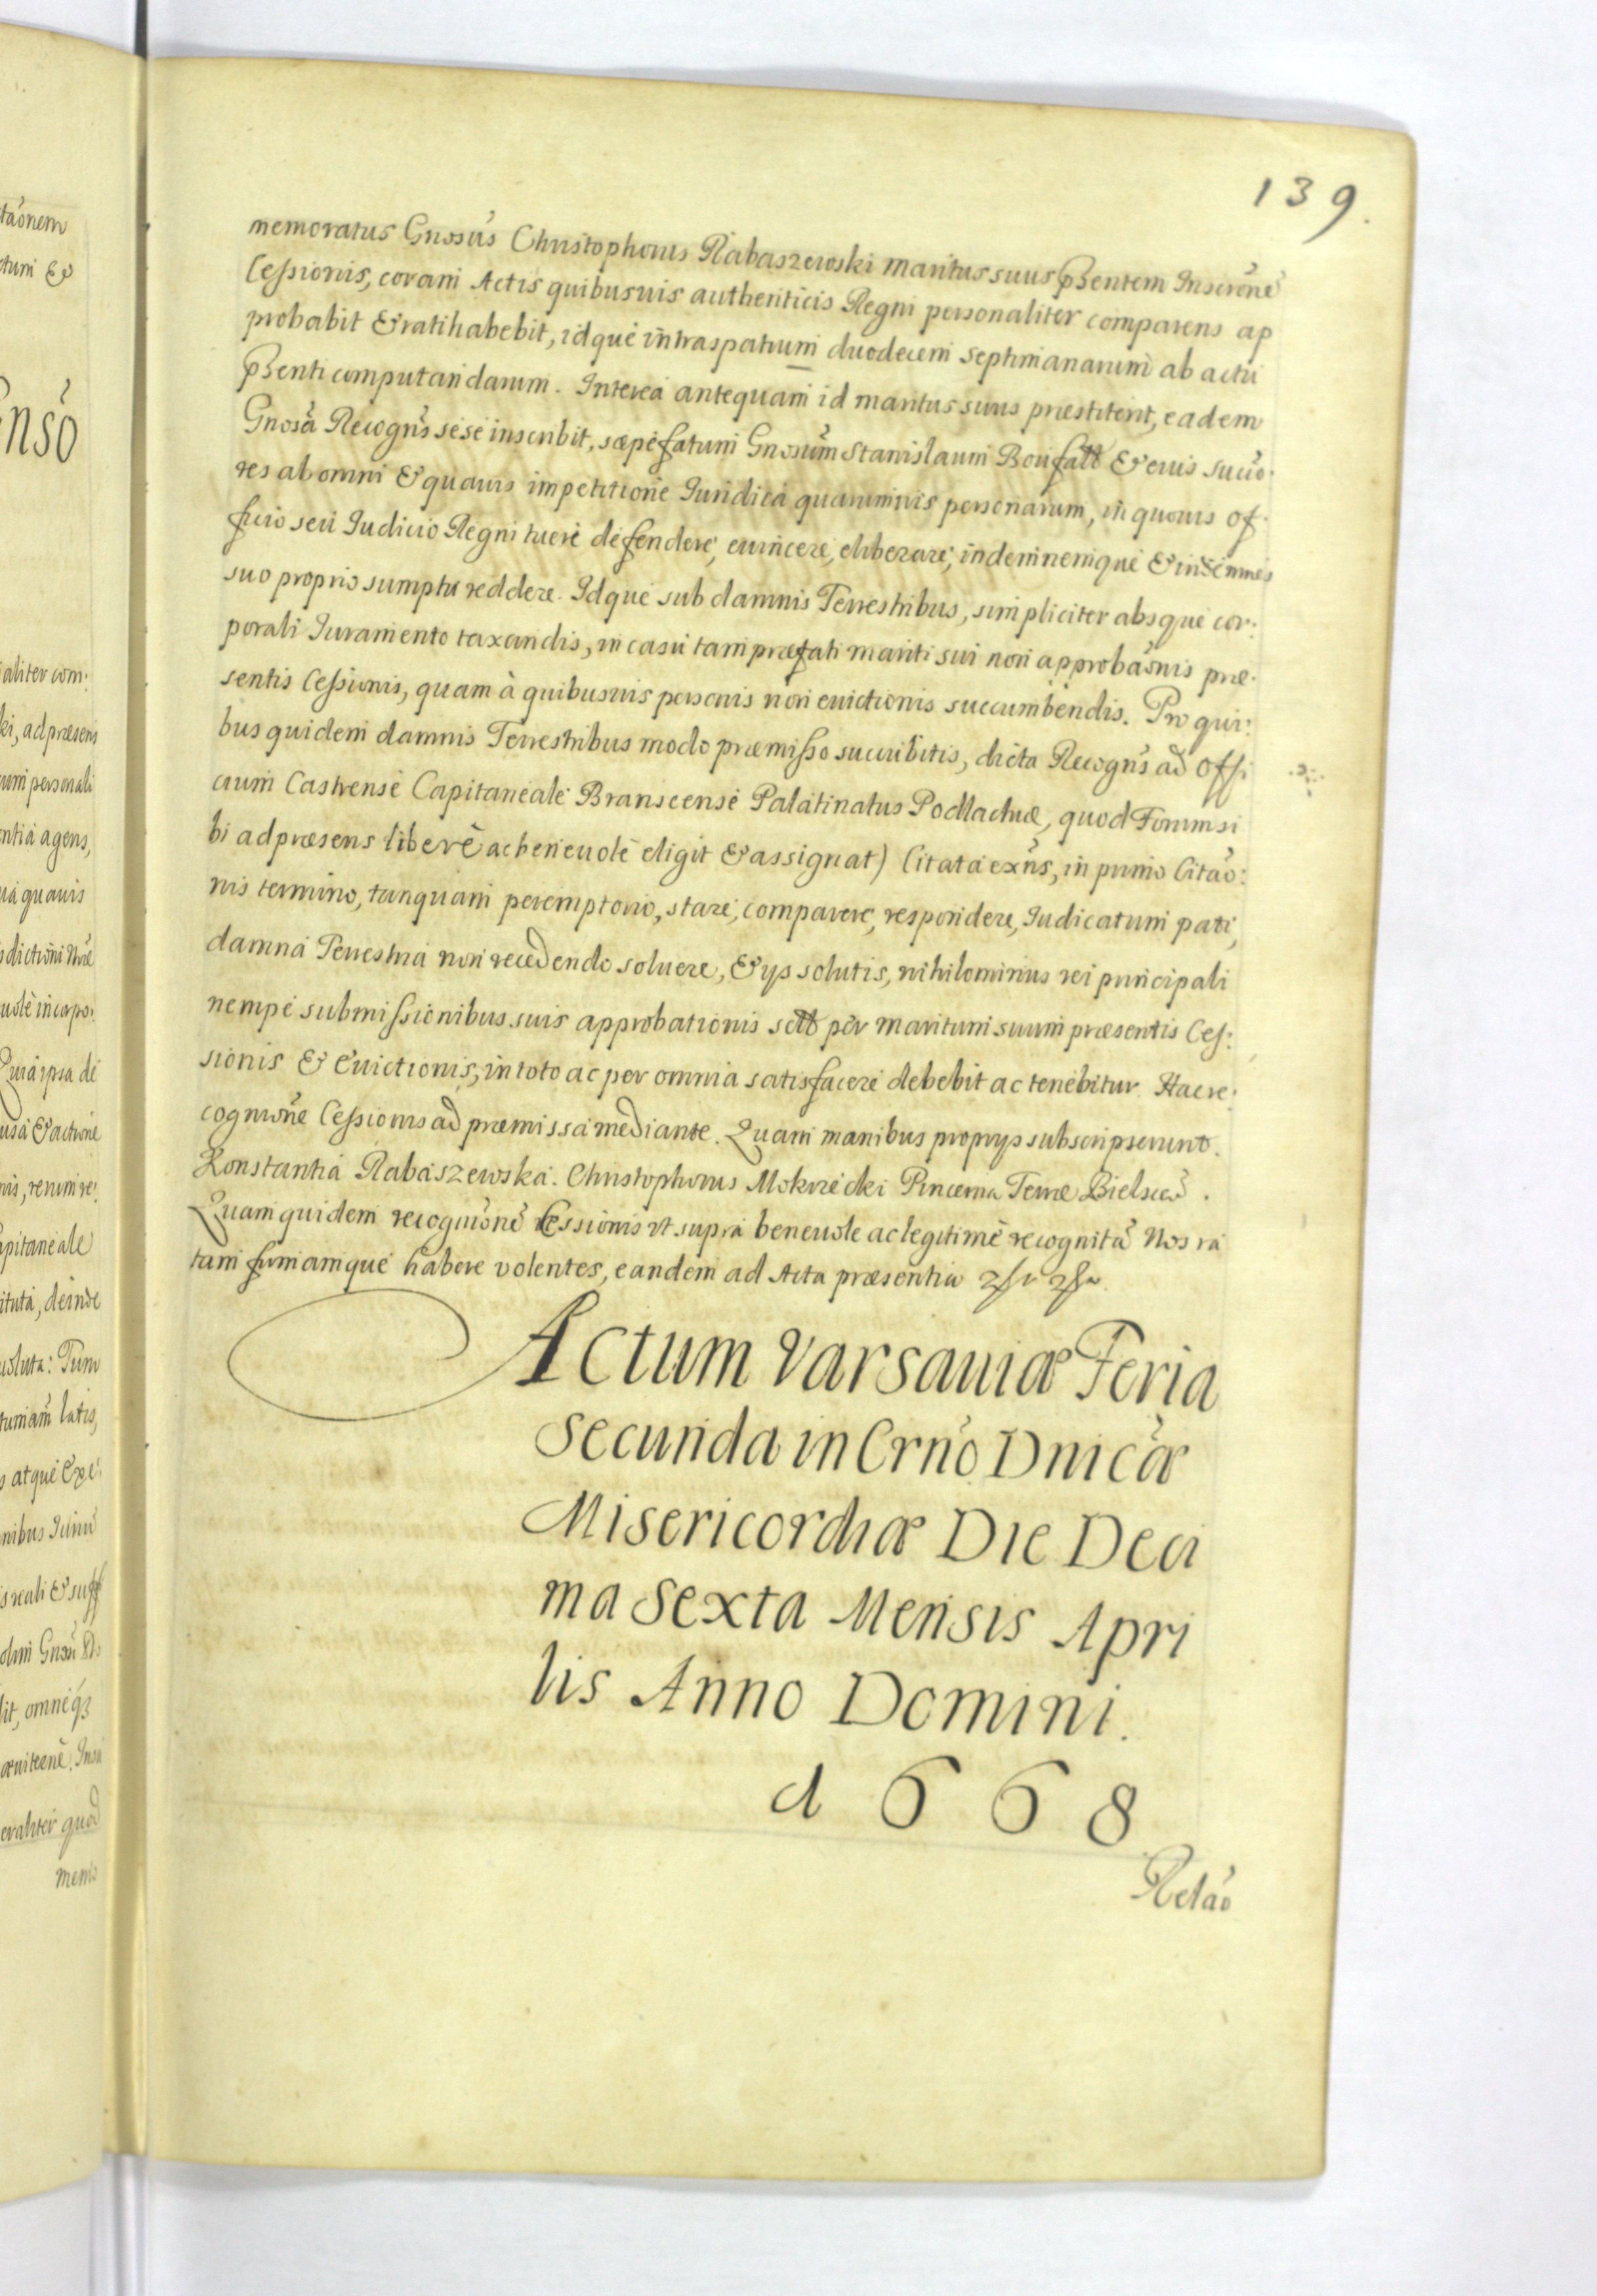 139.
memoratus Gnosūs Christophorus Rabaszewski maritus suus pñsentem Inscrōnē
Cessionis, coram Actis quibusuis authenticis Regni personaliter comparens ap
probabit & ratihabebit, idque intra spatium duodecim septimanarum ab actu
pñsenti computandarum. Interea antequam id maritus suus præstiterit, eadem
Gnosã Recogñs sese inscribit, sæpefatum Gnosūm Stanislaum Boufatt & eius succo:
res ab omni & quauis impetitione Iuridica quarumuis personarum, in quouis of:
ficio seu Iudicio Regni tueri defendere, euincere, eliberare, indemnemque & indemnes
suo proprio sumptu reddere. Idque sub damnis Terrestribus, simpliciter absque cor:
porali Iuramento taxandis, in casu tam præfati mariti sui non approbaõnis præ:
sentis Cessionis, quam à quibusuis personis non euictionis succumbendis. Pro qui:
bus quidem damnis Terrestribus modo præmisso succubitis, dicta Recogñs ad Offi
cium Castrense Capitaneale Branscense Palatinatus Podlachiæ, quod Forum si
bi ad præsens liberè ac beneuolè eligit & assignat) Citata exñs, in primo Citaõ:
nis termino, tanquam peremptorio, stare, comparere, respondere, Iudicatum pati,
damna Terrestria non recedendo soluere, & ijs solutis, nihilominus rei principali
nempe submissionibus suis approbationis sctt per maritum suum præsentis Ces:
sionis & Euictionis, in toto ac per omnia satisfacere debebit ac tenebitur. Hac re:
cogniõne Cessionis ad præmissa mediante. Quam manibus proprijs subscripserunt.
Konstantia Rabaszewska. Christophorus Mokrzecki Pincerna Terræ Bielscen̄.
Quam quidem recogniõnē Cessionis vt supra beneuole ac legitimè recognitã Nos ra
tam firmamque habere volentes, eandem ad Acta præsentia
Actum Varsauiæ Feria
Secunda in Crñõ Dnicæ
Misericordiæ Die Deci
ma Sexta Mensis Apri
lis Anno Domini.
1668
Relaõ
taõnem
ctum &
Gnsõ
aliter com:
ki, ad præsens
cum personali
entia agens,
quauis
uolè incorpo:
Quia ipsa de
usa & actione
nis, rerum re:
apitaneale
ituta, deinde
soluta: Tum
latis,
atque Exe:
s reali & suff
erahter quod
memo